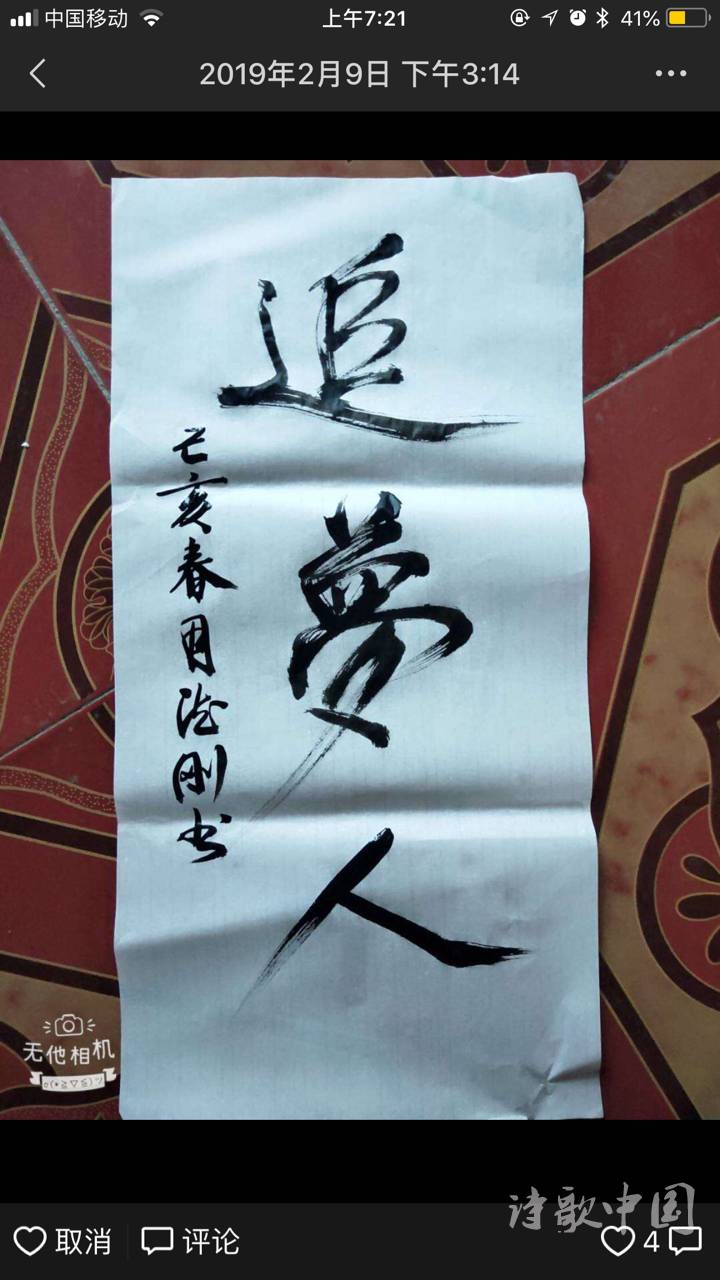 中国移动 上午7:21 41%
2019年2月9日 下午3:14
追夢人
己亥春周德刚书
无他相机
o(*≧▽≦)ツ
诗歌中国
取消 评论 4